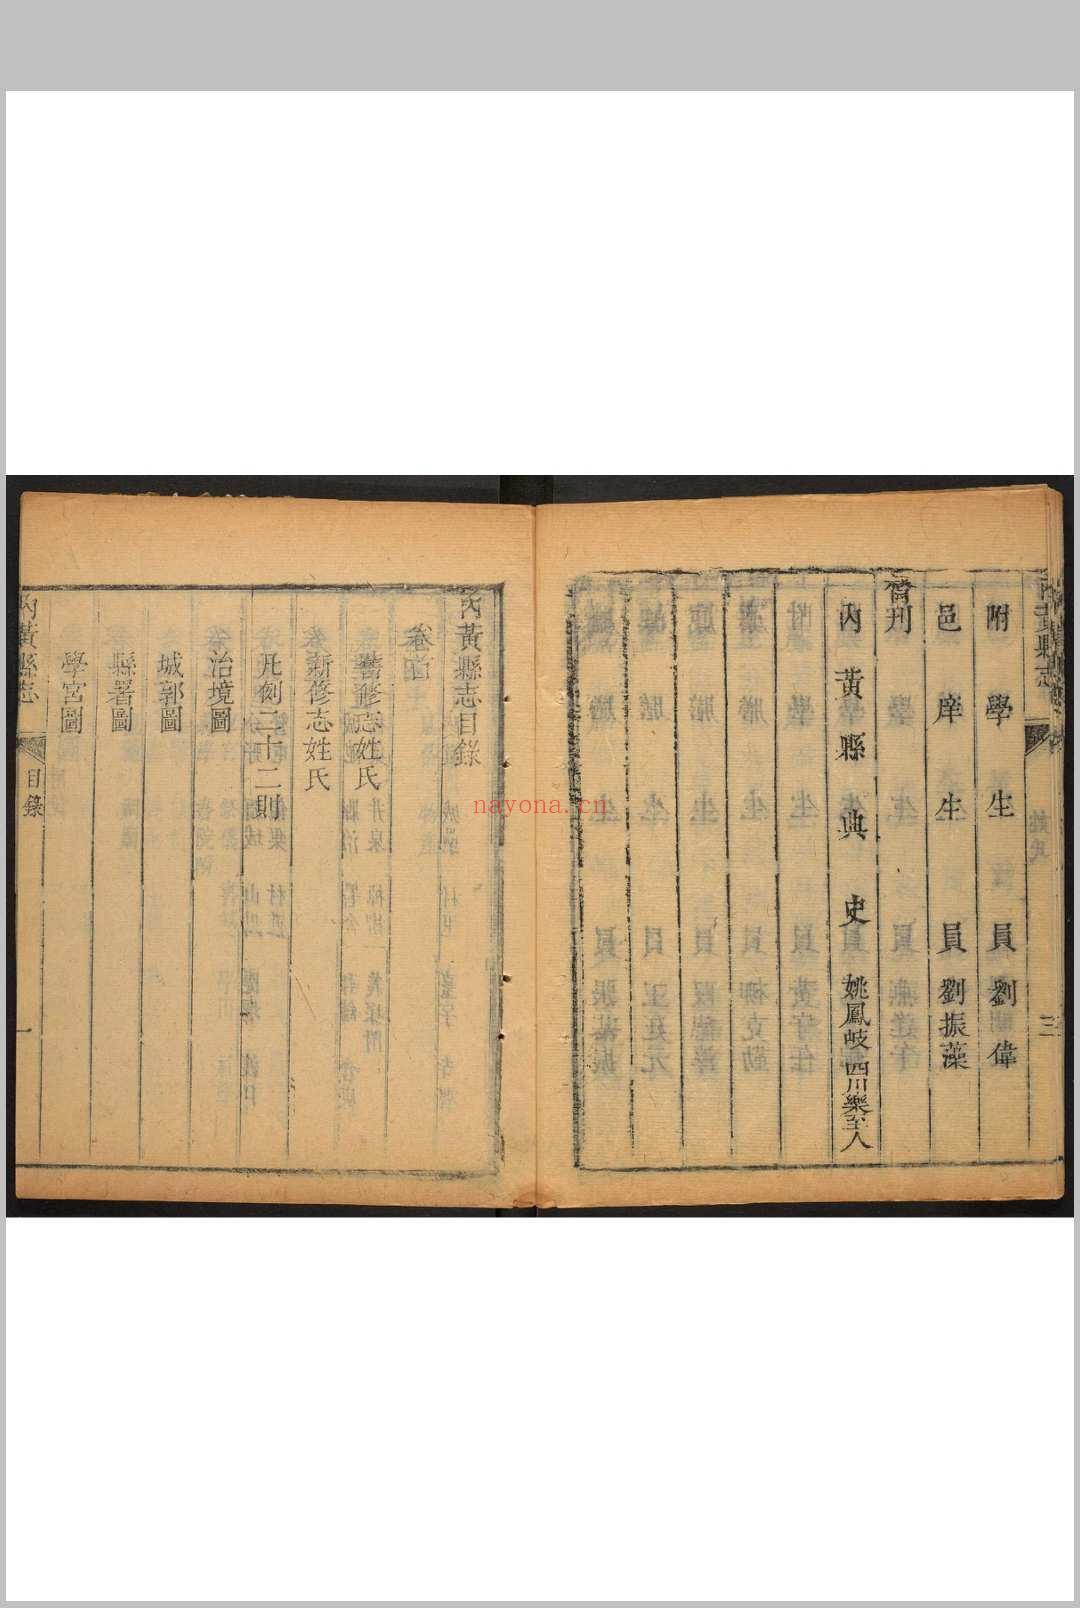 附學生員劉偉
邑庠生員劉振藻
督刊
內黃縣典史姚鳳岐四川樂至人
內黃縣志
姓氏
三
內黃縣志目錄
卷首
舊修志姓氏
新修志姓氏
凡例二十二則
治境圖
城郭圖
縣署圖
學宮圖
內黃縣志
目錄
一
nayona.cn